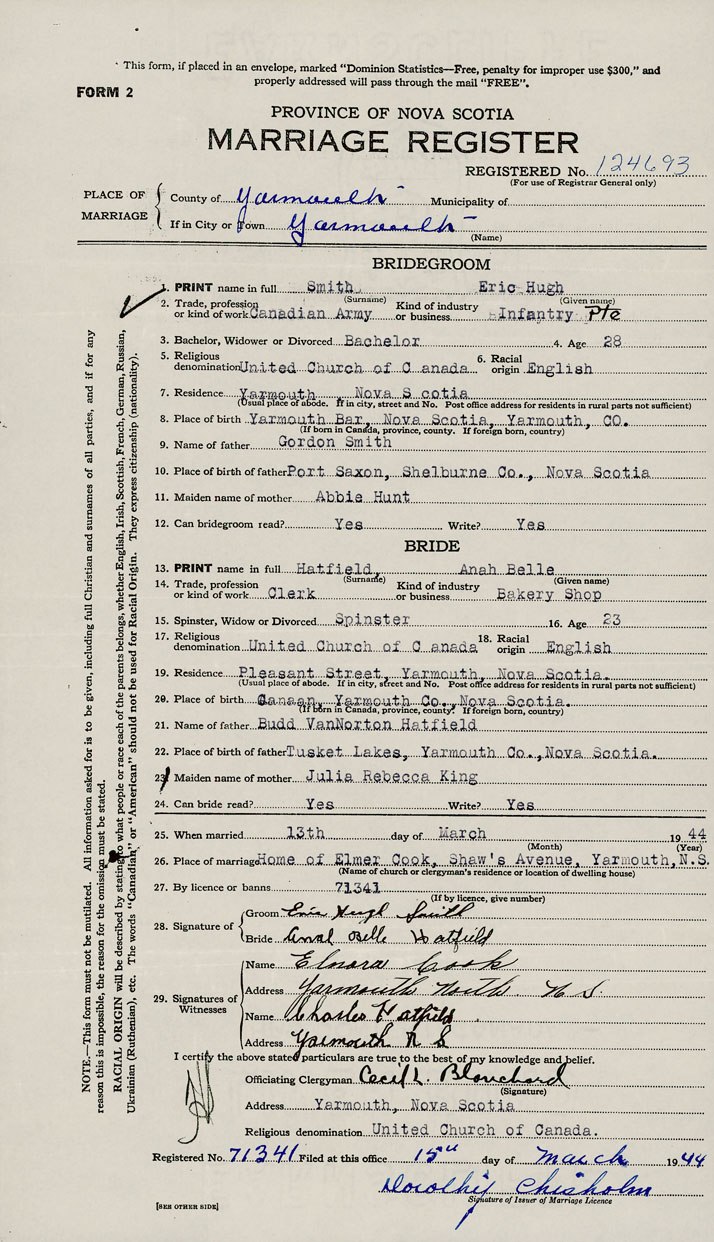 This form, if placed in an envelope, marked "Dominion Statistics—Free, penalty for improper use $300," and
properly addressed will pass through the mail "FREE".
FORM 2
PROVINCE OF NOVA SCOTIA
MARRIAGE REGISTER
REGISTERED No. 124693
(For use of Registrar General only)
PLACE OF MARRIAGE
County of Yarmouth Municipality of
If in City or Town Yarmouth
(Name)
BRIDEGROOM
1. PRINT name in full Smith Eric Hugh
(Surname) (Given name)
2. Trade, profession or kind of work Canadian Army Kind of industry or business Infantry Pte
3. Bachelor, Widower or Divorced Bachelor 4. Age 28
5. Religious denomination United Church of C anada 6. Racial origin English
7. Residence Yarmouth Nova S cotia
(Usual place of abode. If in city, street and No. Post office address for residents in rural parts not sufficient)
8. Place of birth Yarmouth Bar, Nova Scotia, Yarmouth, CO.
(If born in Canada, province, county. If foreign born, country)
9. Name of father Gordon Smith
10. Place of birth of father Port Saxon, Shelburne Co., Nova Scotia
11. Maiden name of mother Abbie Hunt
12. Can bridegroom read? Yes Write? Yes
BRIDE
13. PRINT name in full Hatfield, Anah Belle
(Surname) (Given name)
14. Trade, profession or kind of work Clerk Kind of industry or business Bakery Shop
15. Spinster, Widow or Divorced Spinster 16. Age 23
17. Religious denomination United Church of C anada 18. Racial origin English
19. Residence Pleasant Street, Yarmouth, Nova Scotia.
(Usual place of abode. If in city, street and No. Post office address for residents in rural parts not sufficient)
20. Place of birth Canaan, Yarmouth Co., Nova Scotia.
(If born in Canada, province, county? If foreign born, country)
21. Name of father Budd VanNorton Hatfield
22. Place of birth of father Tusket Lakes, Yarmouth Co., Nova Scotia.
23. Maiden name of mother Julia Rebecca King
24. Can bride read? Yes Write? Yes
25. When married 13th day of March 1944
(Month) (Year)
26. Place of marriage Home of Elmer Cook, Shaw's Avenue, Yarmouth, N.S.
(Name of church or clergyman's residence or location of dwelling house)
27. By licence or banns 71341
(If by licence, give number)
28. Signature of
Groom Eric Hugh Smith
Bride Anah Belle Hatfield
29. Signatures of Witnesses
Name Elnora Cook
Address Yarmouth North N S
Name Charles Hatfield
Address Yarmouth N S
I certify the above stated particulars are true to the best of my knowledge and belief.
Officiating Clergyman Cecil L. Blanchard
(Signature)
Address Yarmouth, Nova Scotia
Religious denomination United Church of Canada.
Registered No. 71341 Filed at this office 15th day of March 1944
Dorothy Chisholm
Signature of Issuer of Marriage Licence
[SEE OTHER SIDE]
NOTE.—This form must not be mutilated. All information asked for is to be given, including full Christian and surnames of all parties, and if for any
reason this is impossible, the reason for the omission must be stated.
RACIAL ORIGIN will be described by stating to what people or race each of the parents belongs, whether English, Irish, Scottish, French, German, Russian,
Ukrainian (Ruthenian), etc. The words "Canadian" or "American" should not be used for Racial Origin. They express citizenship (nationality).